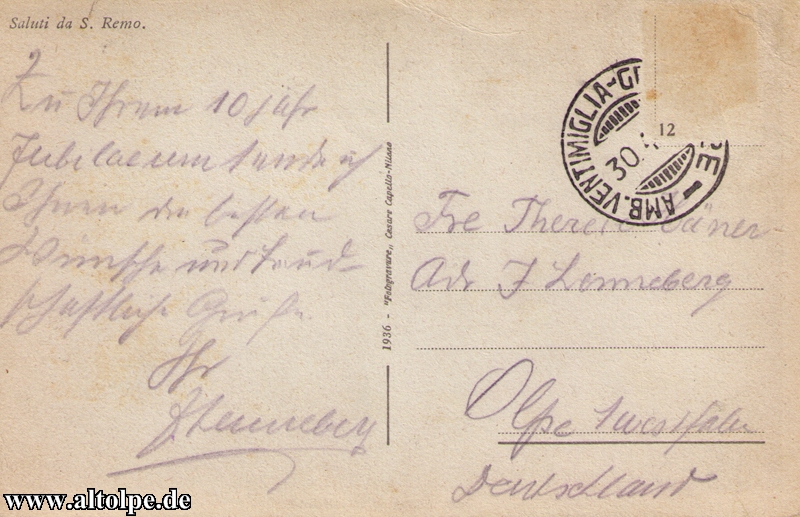 Saluti da S. Remo.
Zu Ihrem 10 jähr
Jubilaeum sende ich
Ihnen die besten
Wünsche und freund-
schaftliche Grüße
Ihr
1936 - "Fotogravure" Cesare Capello-Milano
AMB. VENTIMIGLIA-GE
30.
12
Therese
Adr J Lönneberg
Olpe Westfalen
Deutschland
www.altolpe.de